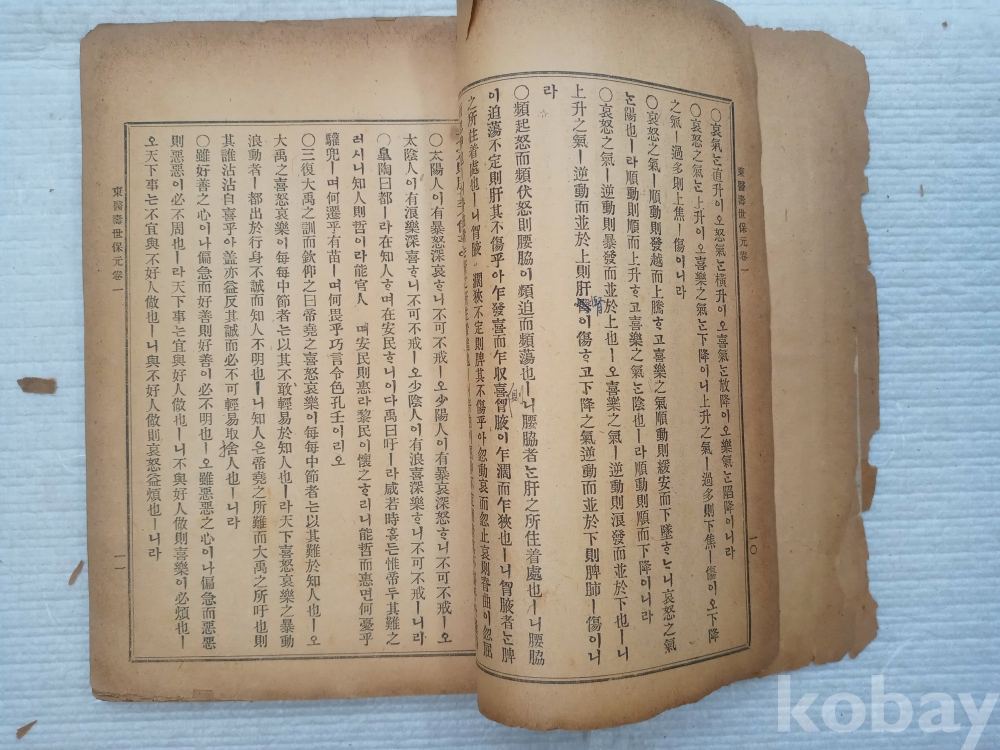 東醫壽世保元卷一
一〇
〇哀氣ᄂᆞᆫ直升이오怒氣ᄂᆞᆫ橫升이오喜氣ᄂᆞᆫ放降이오樂氣ᄂᆞᆫ陷降이니라
〇哀怒之氣ᄂᆞᆫ上升이오喜樂之氣ᄂᆞᆫ下降이니上升之氣ㅣ過多則下焦ㅣ傷이오下降
之氣ㅣ過多則上焦ㅣ傷이니라
〇哀怒之氣ㅣ順動則發越而上騰ᄒᆞ고喜樂之氣順動則緩安而下墜ᄒᆞᄂᆞ니哀怒之氣
ᄂᆞᆫ陽也ㅣ라順動則順而上升ᄒᆞ고喜樂之氣ᄂᆞᆫ陰也ㅣ라順動則順而下降이니라
〇哀怒之氣ㅣ逆動則暴發而並於上也ㅣ오喜樂之氣ㅣ逆動則浪發而並於下也ㅣ니
上升之氣ㅣ逆動而並於上則肝腎이傷ᄒᆞ고下降之氣逆動而並於下則脾肺ㅣ傷이니
라
〇頻起怒而頻伏怒則腰脇이頻迫而頻蕩也ㅣ니腰脇者ᄂᆞᆫ肝之所住着處也ㅣ니腰脇
이迫蕩不定則肝其不傷乎아乍發喜而乍収喜則胷腋이乍濶而乍狹也ㅣ니胷腋者ᄂᆞᆫ脾
之所住着處也ㅣ니胷腋濶狹不定則脾其不傷乎아忽動哀而忽止哀則脊曲이忽屈
〇太陽人이有暴怒深哀ᄒᆞ니不可不戒ㅣ오少陽人이有暴哀深怒ᄒᆞ니不可不戒ㅣ오
太陰人이有浪樂深喜ᄒᆞ니不可不戒ㅣ오少陰人이有浪喜深樂ᄒᆞ니不可不戒ㅣ니라
〇皐陶曰都ㅣ라在知人ᄒᆞ며在安民ᄒᆞ니이다禹曰吁ㅣ라咸若時흠든惟帝두其難之
러시니知人則哲이라能官人 며安民則惠라黎民이懷之ᄒᆞ리니能哲而惠면何憂乎
驩兜ㅣ며何遷乎有苗ㅣ며何畏乎巧言令色孔壬이리오
〇三復大禹之訓而欽仰之曰帝堯之喜怒哀樂이每每中節者ᄂᆞᆫ以其難於知人也ㅣ오
大禹之喜怒哀樂이每每中節者ᄂᆞᆫ以其不敢輕易於知人也ㅣ라天下喜怒哀樂之暴動
浪動者ㅣ都出於行身不誠而知人不明也ㅣ니知人은帝堯之所難而大禹之所吁也則
其誰沾沾自喜乎아盖亦益反其誠而必不可輕易取捨人也ㅣ니라
〇雖好善之心이나偏急而好善則好善이必不明也ㅣ오雖惡惡之心이나偏急而惡惡
則惡惡이必不周也ㅣ라天下事ᄂᆞᆫ宜與好人做也ㅣ니不與好人做則喜樂이必煩也ㅣ
오天下事ᄂᆞᆫ不宜與不好人做也ㅣ니與不好人做則哀怒益煩也ㅣ니라
東醫壽世保元卷一
一一
kobay